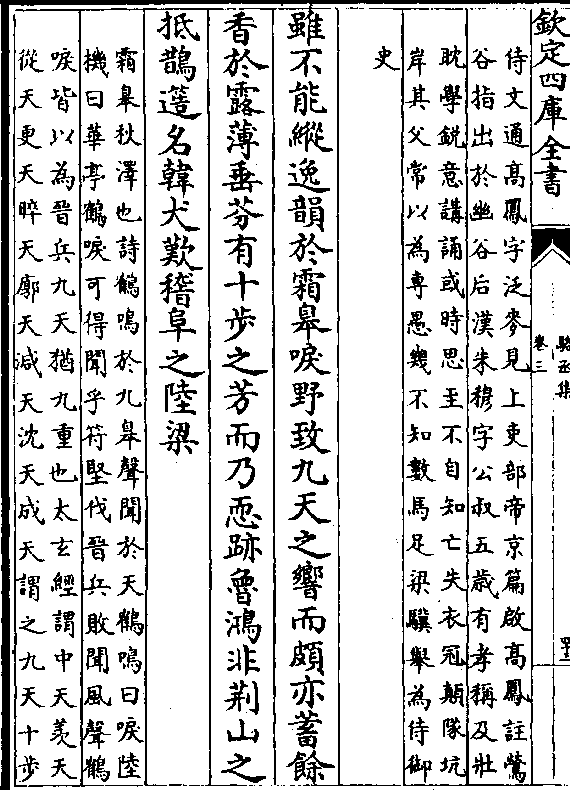 欽定四庫全書
駱丞集
卷三
侍文通高鳳字泛麥見上吏部帝京篇啟高鳳註鶯
谷指出於幽谷后漢朱穆字公叔五歲有孝稱及壯
耽學銳意講誦或時思至不自知亡失衣冠顛隊坑
岸其父常以為専愚幾不知數馬足梁驥舉為侍御
史
雖不能縱逸韻於霜臯唳野致九天之響而頗亦蓄餘
香於露薄垂芬有十步之芳而乃恧跡魯鴻非荆山之
抵鵲簉名韓犬歎稽阜之陸梁
霜臯秋澤也詩鶴鳴於九臯聲聞於天鶴鳴曰唳陸
機曰華亭鶴唳可得聞乎符堅伐晉兵敗聞風聲鶴
唳皆以為晉兵九天猶九重也太玄經謂中天羙天
從天更天晬天廓天減天沈天成天謂之九天十步